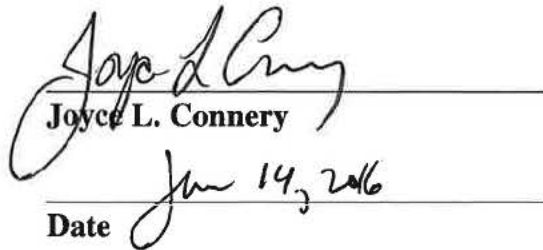 Joyce L Connery
Joyce L. Connery
Jun 14, 2016
Date